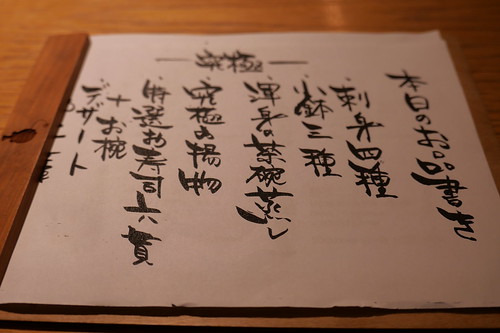 本日のお品書き
刺身四種
小鉢三種
―究極―
渾身の茶碗蒸し
究極の揚物
特選お寿司六貫
+お椀
デザート